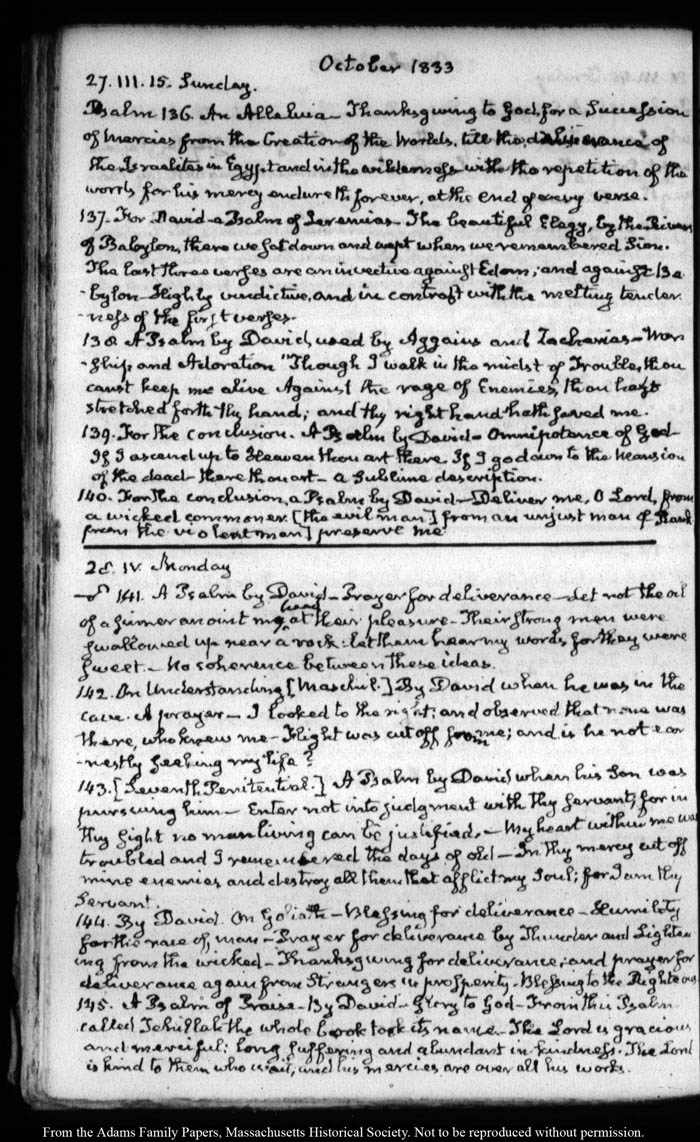 October 1833
27. III. 15. Sunday.
Psalm 136. An Alleluia - Thanksgiving to God, for a Succession
of Mercies from the Creation of the Worlds, till the deliverance of
the Israelites in Egypt and in the wilderness with the repetition of the
words for his mercy endureth forever, at the end of every verse.
137. For David - a Psalm of Jeremias - The beautiful Elegy, by the Rivers
of Babylon, there we sat down and wept when we remembered Sion.
The last three verses are an invective against Edom; and against Ba
-bylon - Highly vindictive, and in contrast with the melting tender
-ness of the first verses.
138 A Psalm by David, used by Aggaius and Zacharias - Wor
-ship and Adoration "Though I walk in the midst of Trouble, thou
canst keep me alive Against the rage of Enemies, thou hast
stretched forth thy hand; and thy right hand hath saved me.
139. For the conclusion. A Psalm by David - Omnipotence of God
If I ascend up to Heaven thou art there If I go down to the Mansion
of the dead - there thou art - a sublime description.
140. For the conclusion, a Psalm by David - Deliver me, O Lord, from
a wicked commoner [the evil man] from an unjust man of Rank
from the violent man] preserve me.
28. IV. Monday
141. A Psalm by David - Prayer for deliverance - Let not the oil
of a sinner anoint my head at their pleasure - Their strong men were
swallowed up near a rock: let them hear my words for they were
sweet. - No coherence between these ideas.
142. On Understanding [Maschil.] By David when he was in the
cave. A prayer - I looked to the right; and observed that none was
there, who knew me - Flight was cut off from me; and is he not ear
-nestly seeking my life?
143. [Seventh Penitential.] A Psalm by David when his Son was
pursuing him - Enter not into judgment with thy servant; for in
Thy sight no man living can be justified. - My heart within me was
troubled and I remembered the days of old - In thy mercy cut off
mine enemies and destroy all them that afflict my Soul; for I am thy
Servant.
144. By David. On Goliath - Blessing for deliverance - Humility
for the race of man - Prayer for deliverance by Thunder and Lighten
ing from the wicked - Thanksgiving for deliverance; and prayer for
deliverance again from Strangers in prosperity - Blessing to the Righteous
145. A Psalm of Praise - By David - Glory to God - From this Psalm
called Tehillah the whole book took its name - The Lord is gracious
and merciful: long suffering and abundant in kindness. The Lord
is kind to them who wait, and his mercies are over all his works.
From the Adams Family Papers, Massachusetts Historical Society. Not to be reproduced without permission.